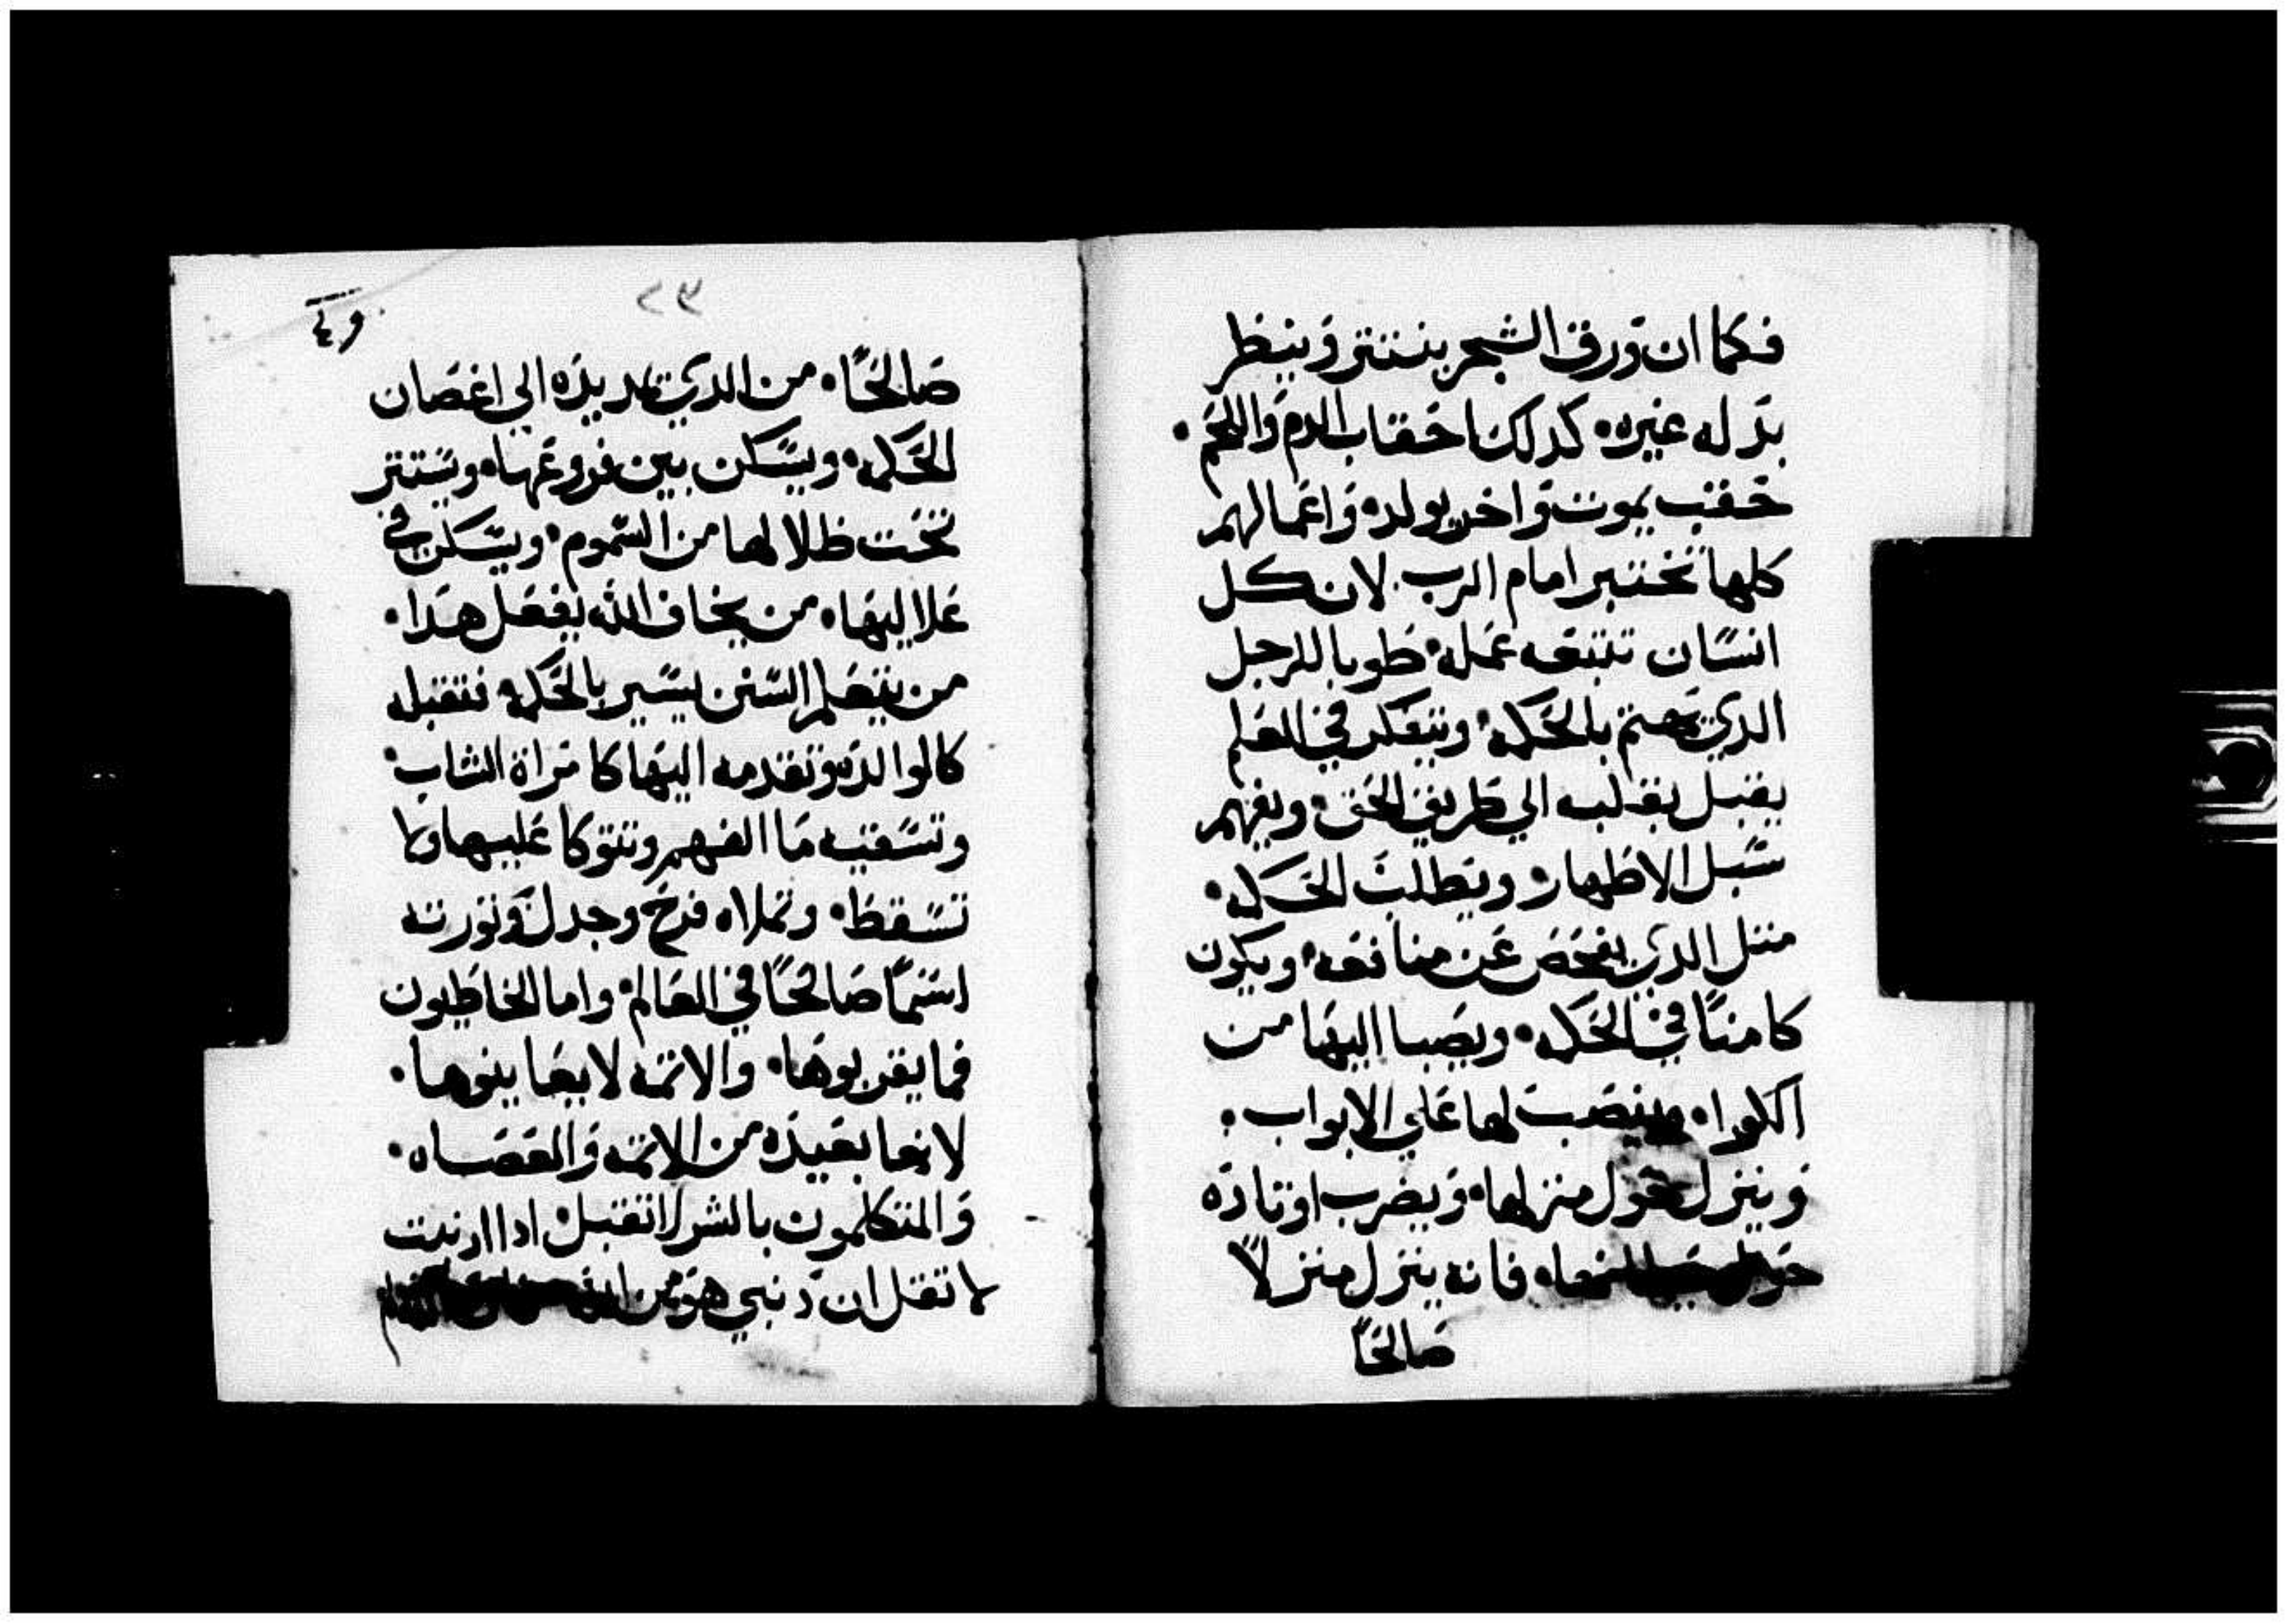 فكما ان ورق الشجر ينتتر وينظر
بدله غيره. كدلك احقاب الدم واللحم.
حقب يموت واخر يولد. واعمالهم
كلها تختبر امام الرب. لان كل
انسان تتبعه عمله. طوبا للرجل
الدي يهتم بالحكمه. ويتفكر في العلم
يقبل بقلبه الي طريق الحق. ويفهم
سبل الاطهار. ويطلب الحكمه.
متل الدي يفحص عن منافعه. ويكون
كامنًا في الحكمه. ويصبا اليها من
الكوا. وينصب لها علي الابواب.
وينزل حول منزلها. ويضرب اوتاده
فانه ينزل منزلاً
صالحًا
٢٣
صالحًا. من الدي يمد يده الي اغصان
الحكمه. ويسكن بين فروعها. ويستتر
تحت ظلالها من السموم. ويسكن في
علاليها. من يخاف الله يفعل هدا.
من يتعلم السنن يسير بالحكمه فتقبله
كالوالده وتقدمه اليها كامراة الشاب.
وتسقيه ما الفهم وتتوكا عليها ولا
تسقط. وتملاه فرح وجدل وتورته
اسمًا صالحًا في العالم. واما الخاطيون
فما يقربوها. والاتمه لا يعاينوها.
لانها بعيده من الاتمه والعصاه.
والمتكلمون بالشر لا تقبل. ادا ادنبت
لا تقل ان دنبي هو من